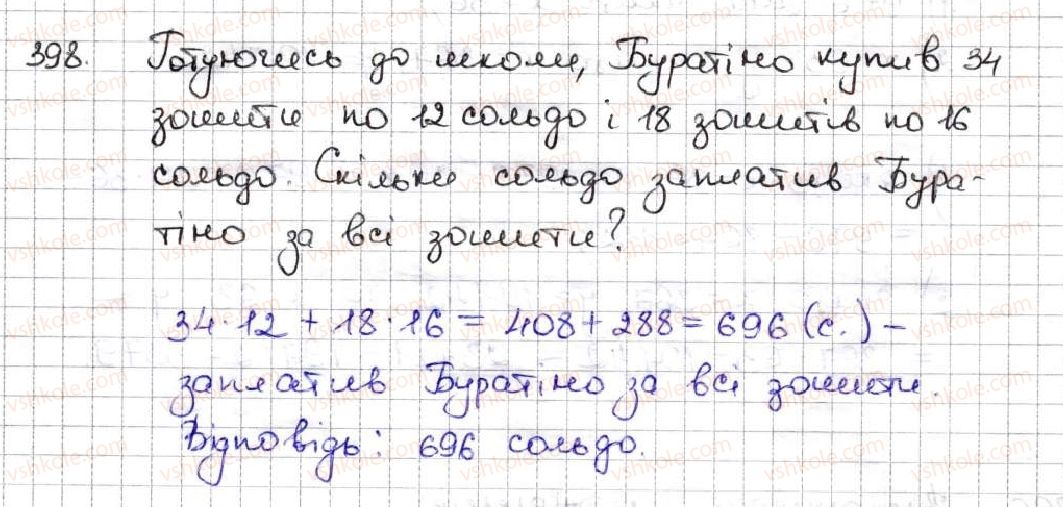 398. Готуючись до школи, Буратіно купив 34
зошити по 12 сольдо і 18 зошитів по 16
сольдо. Скільки сольдо заплатив Бура-
тіно за всі зошити?
34·12 + 18·16 = 408 + 288 = 696 (с.) –
заплатив Буратіно за всі зошити.
Відповідь: 696 сольдо.